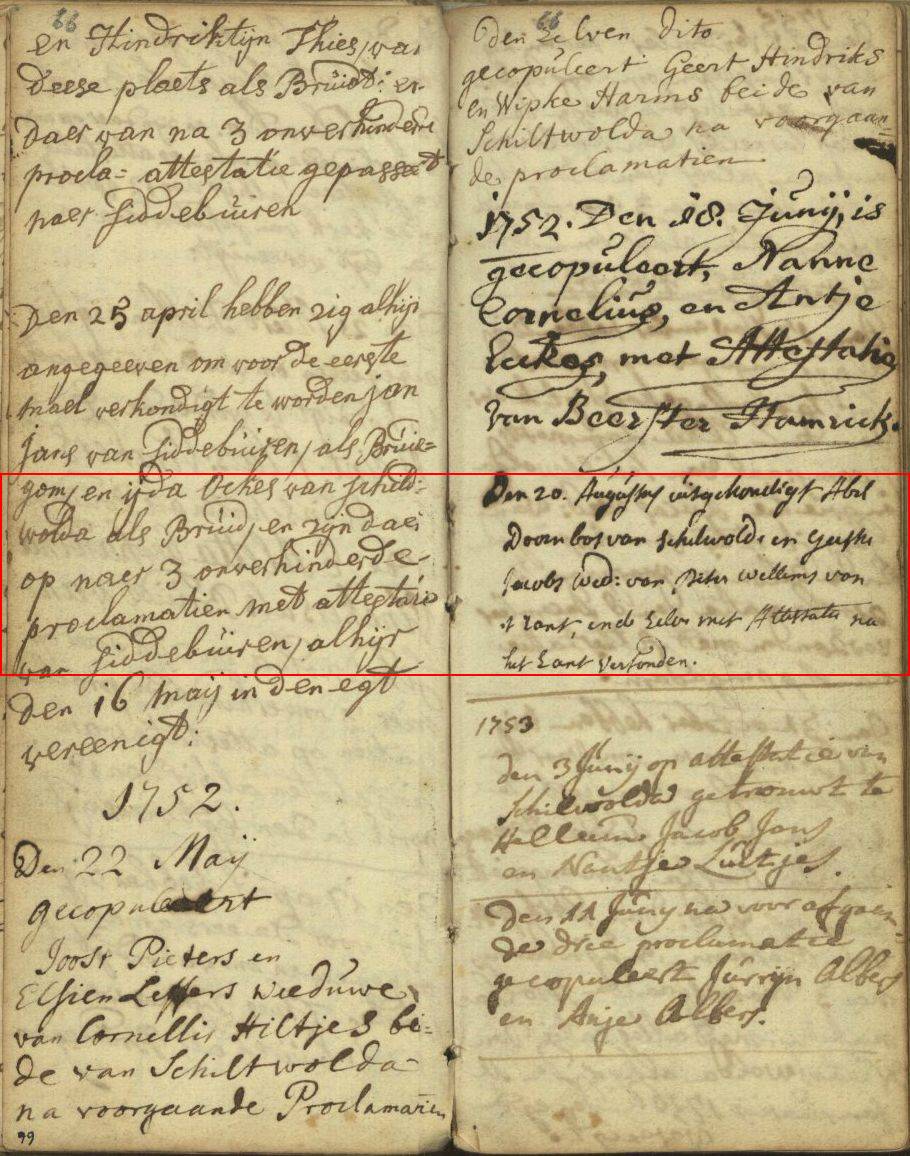 66
en Hindriktijn Thies, van
deese plaets als Bruidt: en
daer van na 3 onverhinderde
procla= attestatie gepasseert
naer Siddebuiren
Den 25 april hebben zig alhijr
angegeeven om voor de eerste
mael verkondigt te worden jan
jans van Siddebuiren, als Bruie=
gom, en ijda Ockes van Schild=
wolda als Bruid, en zijn daer
op naer 3 onverhinderde
proclamatien met attestatie
van Siddebuiren, alhijr
den 16 maij in den egt
vereenigt:
1752.
Den 22 Maij
gecopuleert
Joost Pieters en
Elsien Leffers weeduwe
van Cornellis Hiltjes bei=
de van Schiltwolda
na voorgaande Proclamatien
99
66
Den Selven dito
gecopuleert Geert Hindriks
en Wipke Harms beide van
Schiltwolda na voorgaan=
de proclamatien
1752. Den 18. Junij, is
gecopuleert, Nanne
Cornelius, en Antje
Eukes, met Attestatie
van Beerster Hamrick.
Den 20. Augustus uitgekondigt Abel
Doornbos van Schilwolde en Geeske
Jacobs Wed: van Pieter Willems van
't Zant, ende Selve met Attestatie na
het Zant versonden.
1753
den 3 Junij op attestatie van
Schilwolda getrouwt te
Hellum Jacob Jans
en Nantje Luitjes.
Den 11 Junij na voor afgaan=
de drie proclamatie
gecopuleert Jurryn Albers
en Anje Albers.